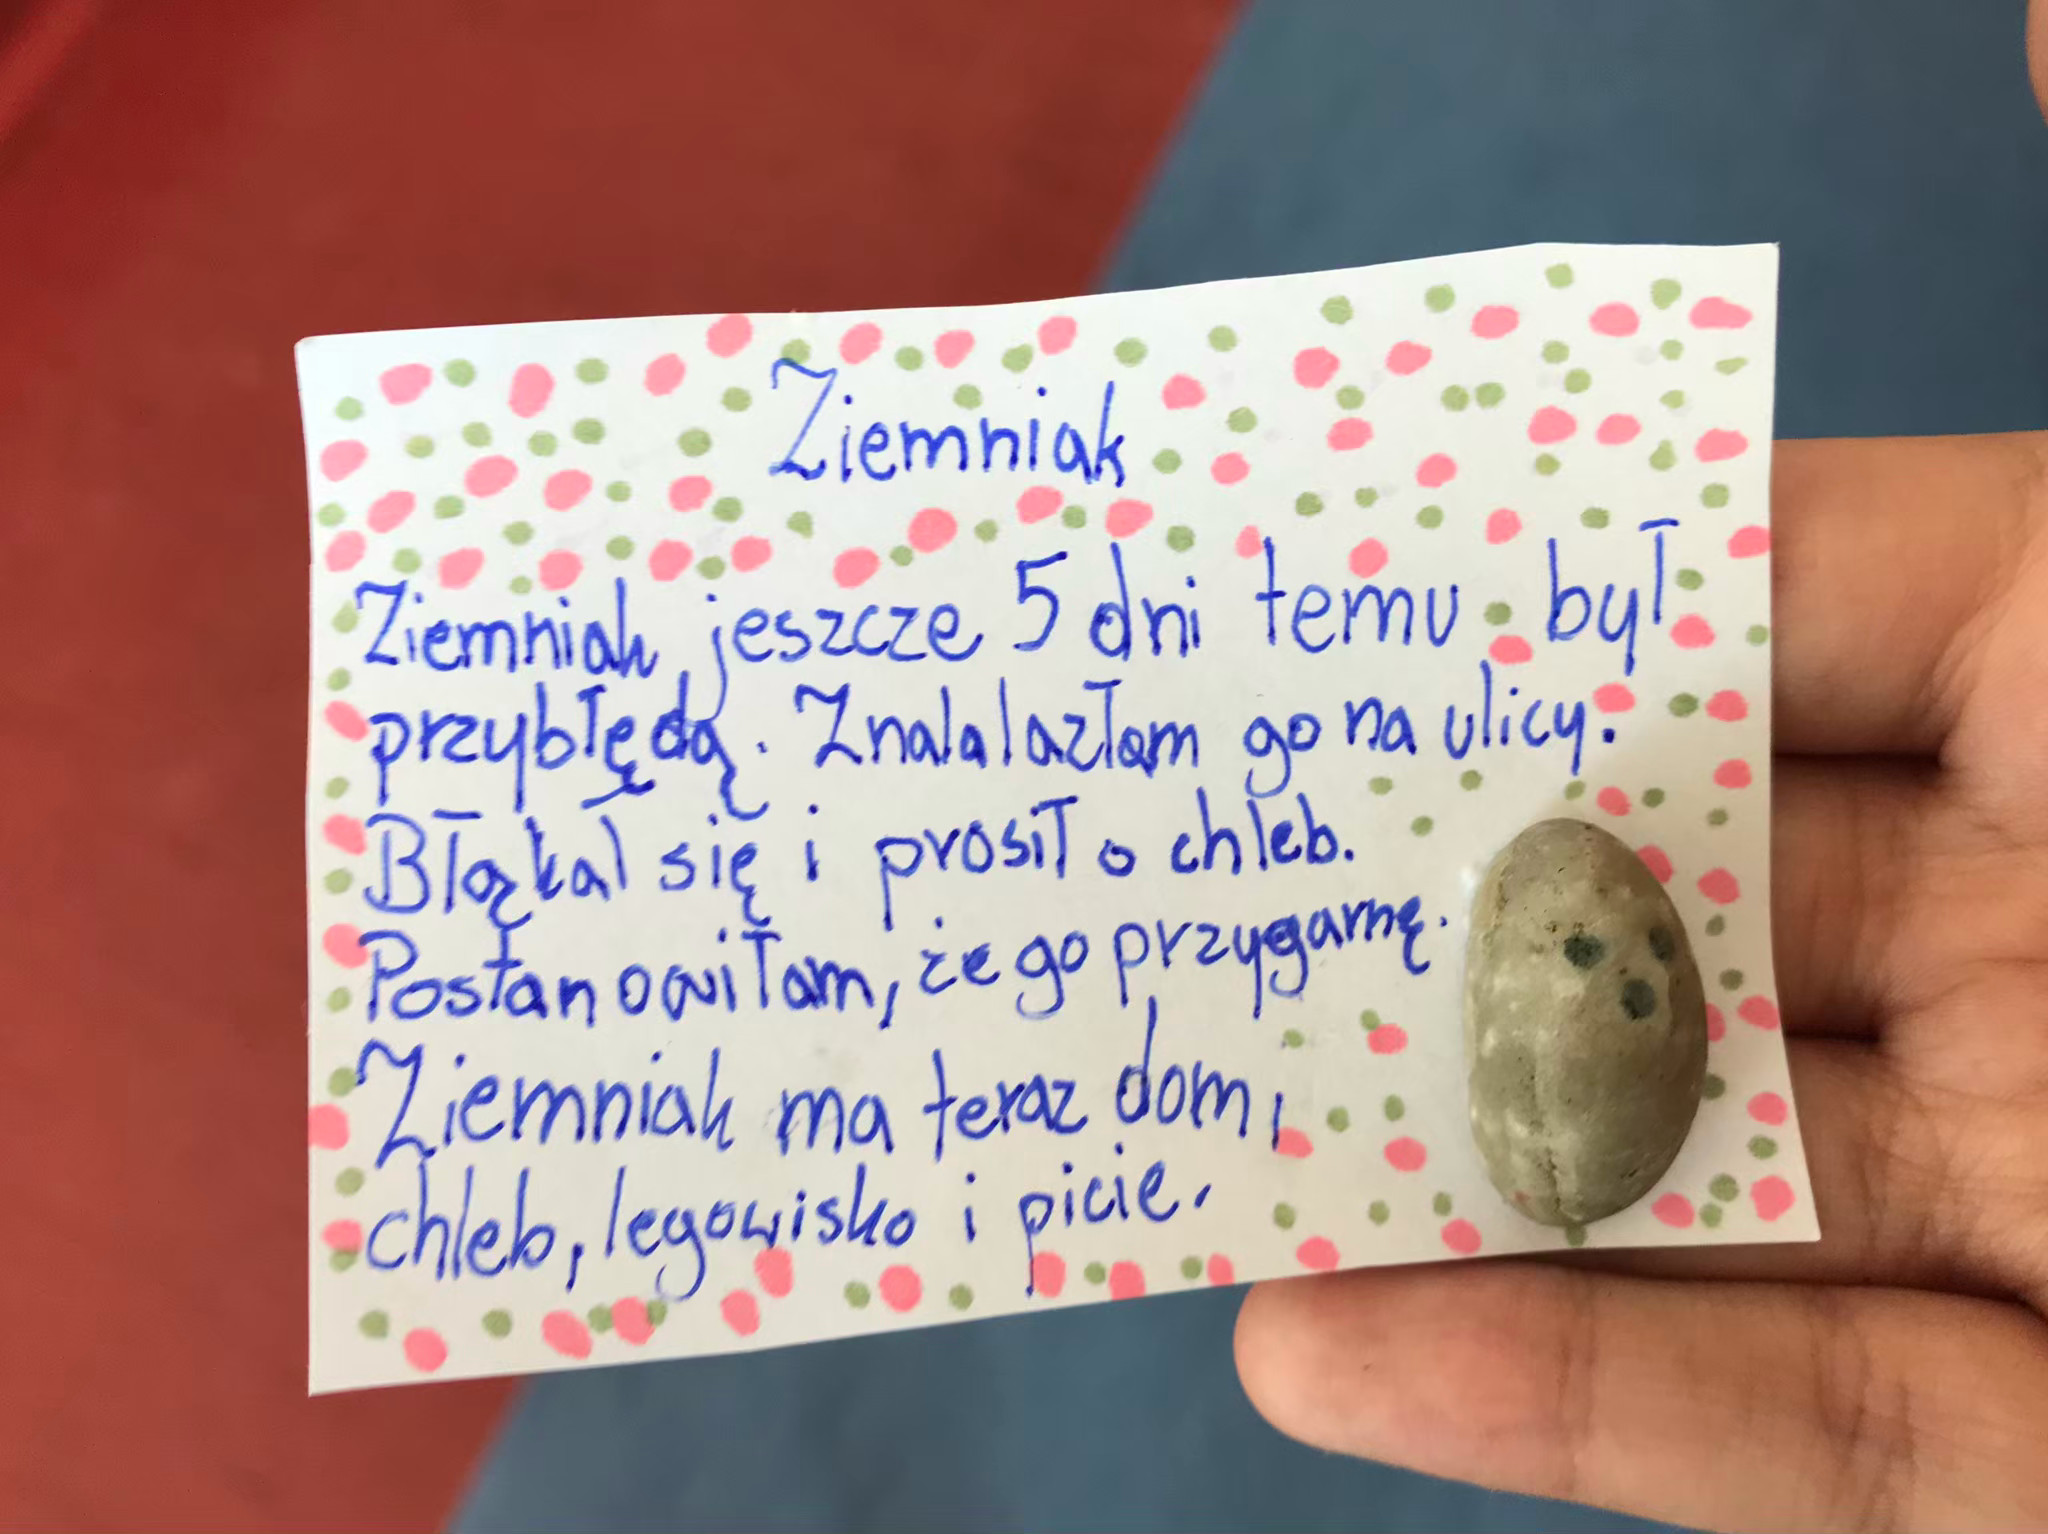 Ziemniak
Ziemniak jeszcze 5 dni temu był
przybłędą. Znalalazłam go na ulicy.
Błąkał się i prosił o chleb.
Postanowiłam, że go przygarnę.
Ziemniak ma teraz dom,
chleb, legowisko i picie.